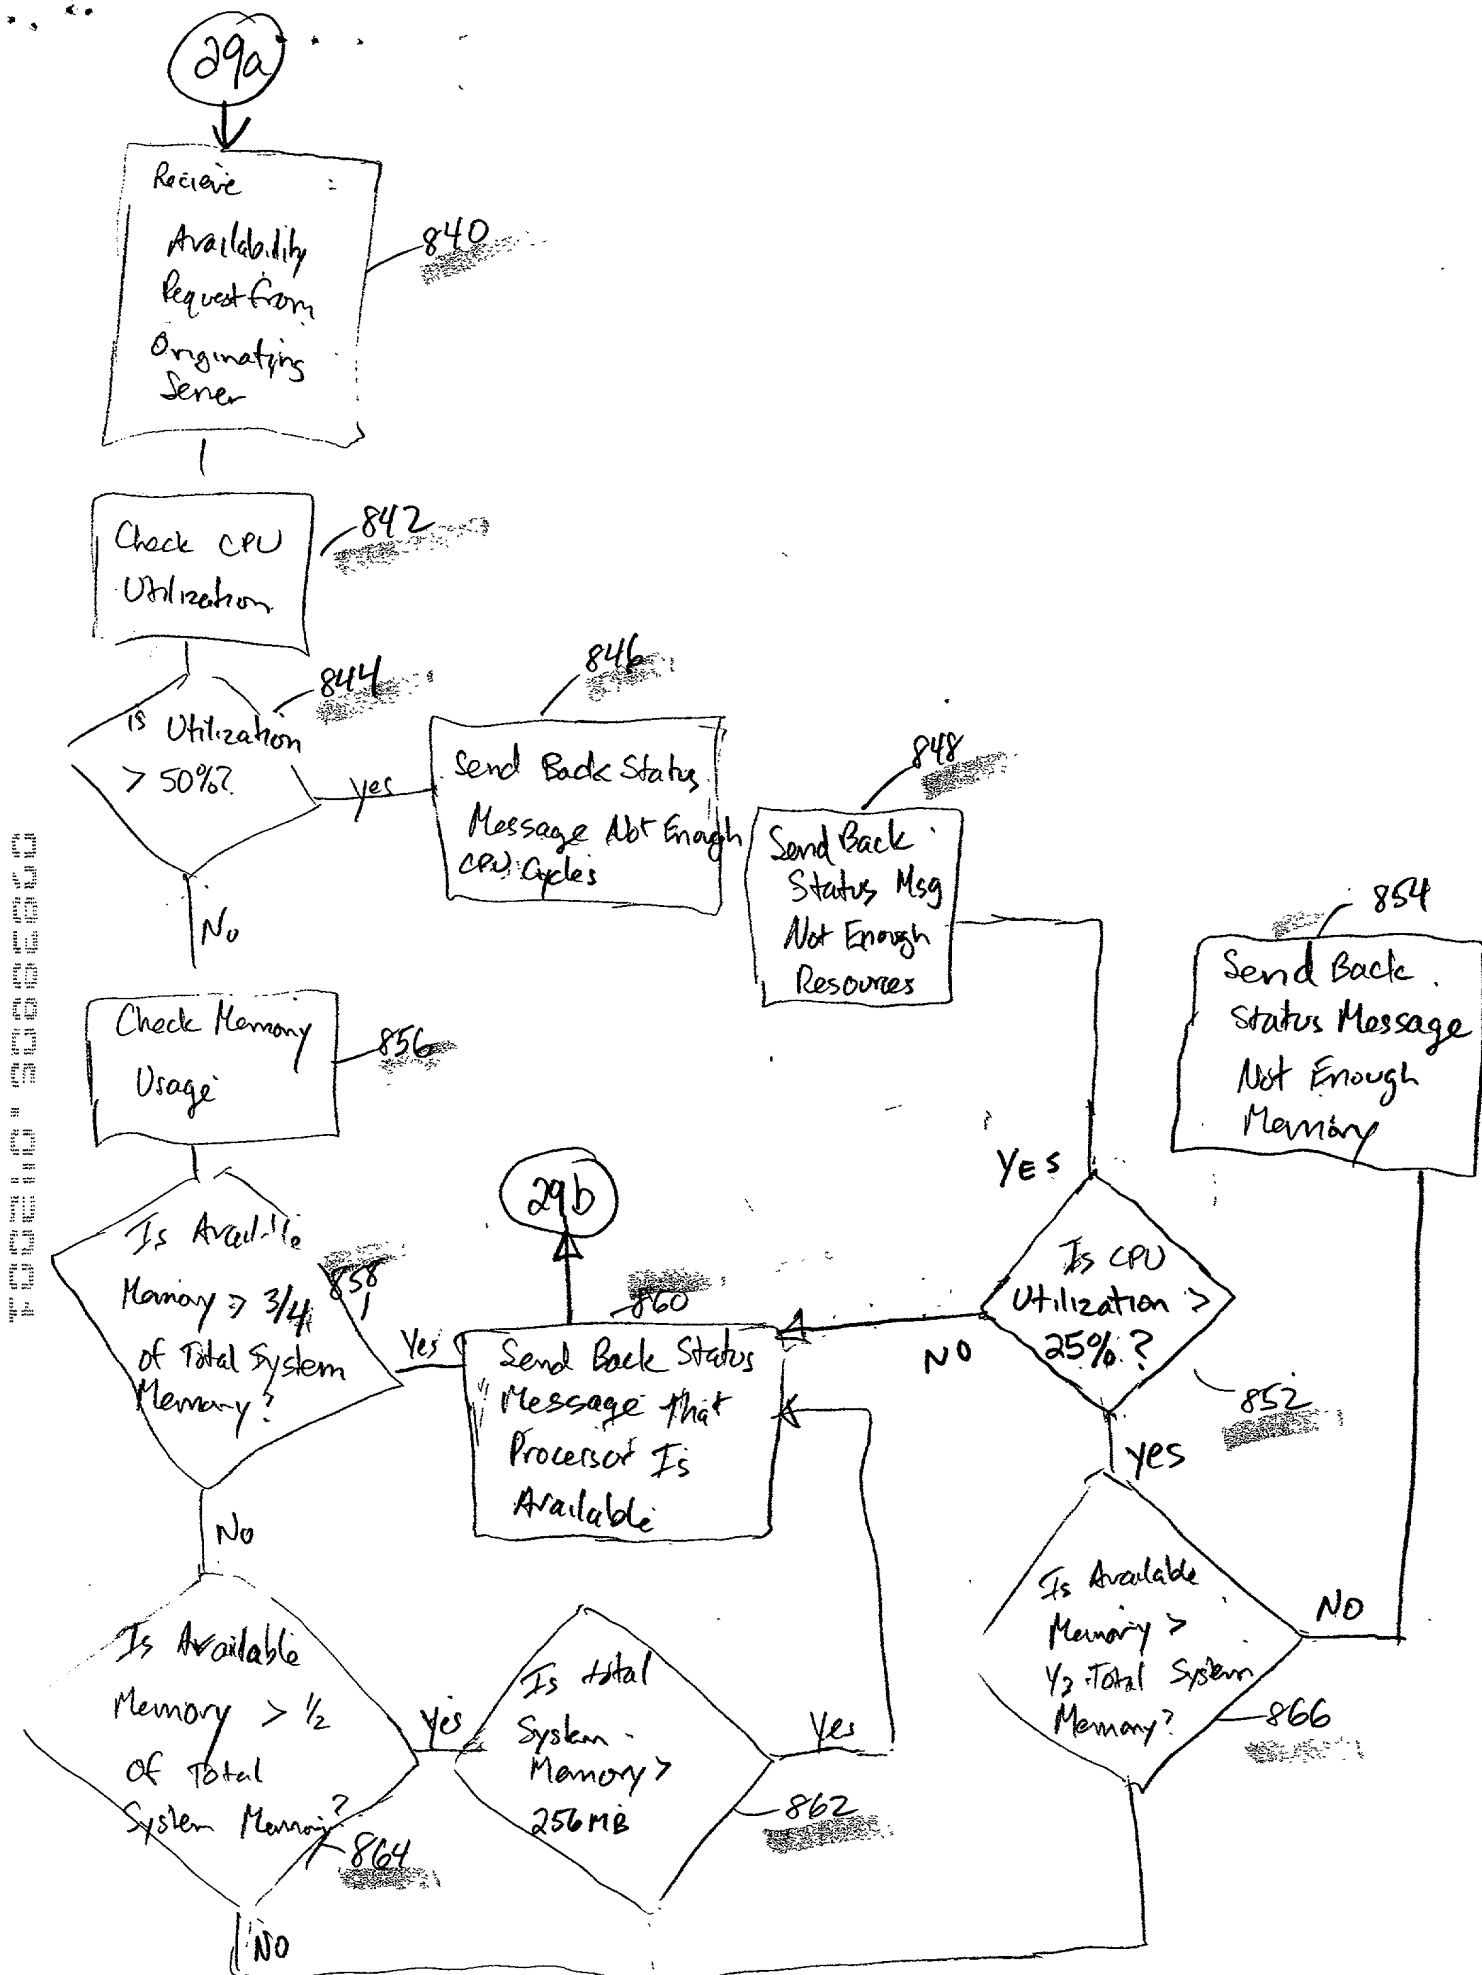 29a
Recieve
Availability
Request from
Originating
Server
840
Check CPU
Utilization
842
is Utilization
> 50%?
844
yes
No
Send Back Status
Message Not Enough
CPU Cycles
846
Send Back
Status Msg
Not Enough
Resources
848
Send Back
Status Message
Not Enough
Memory
854
Check Memory
Usage
856
Is Available
Memory > 3/4
of Total System
Memory?
858
Yes
No
29b
Send Back Status
Message that
Processor Is
Available
860
YES
Is CPU
Utilization >
25%?
852
NO
yes
Is Available
Memory > 1/2
of Total
System Memory?
864
yes
NO
Is total
System
Memory >
256 MB
862
yes
Is Available
Memory >
Total System
Memory?
866
NO